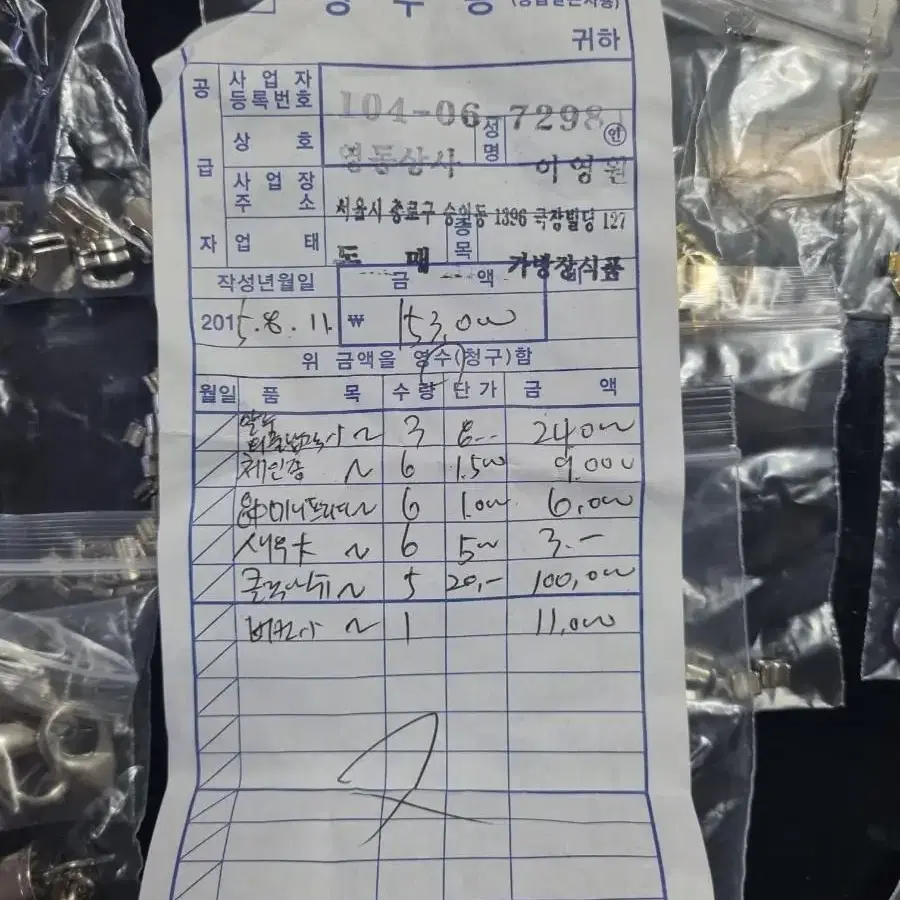 영 수 증 (공급받는자용)
귀하
공 급 자
사 업 자 등록번호 104-06-7298
상 호 영동상사 성명 이영원 인
사 업 장 주 소 서울시 종로구 숭인동 1396 극장빌딩 127
업 태 도 매 종목 가방장식품
작성년월일 금 액
2015.8.11. ₩ 153,000
위 금액을 영수(청구)함
월일 품 목 수량 단가 금 액
3 8-- 24,000
체인중 〃 6 1.500 9.000
6 1.000 6,000
6 500 3.-
5 20,- 100,000
1 11,000